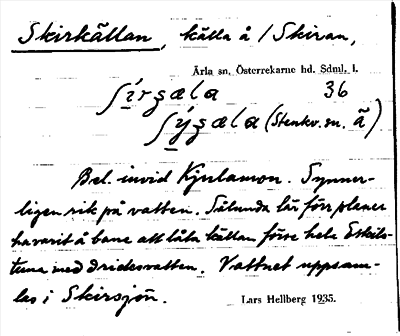 Skirkällan, källa å /Skiran,
Ärla sn, Österrekarne hd. Sdml. l.
ʃírʒæla 36
ʃýʒæla (Stenkv. sn. ã)
Bel. invid Kjulamon. Synner-
ligen rik på vatten. Sålunda lär förr planer
ha varit å bane att låta källan förse hela Eskils-
tuna med dricksvatten. Vattnet uppsam-
las i Skirsjön.
Lars Hellberg 1935.